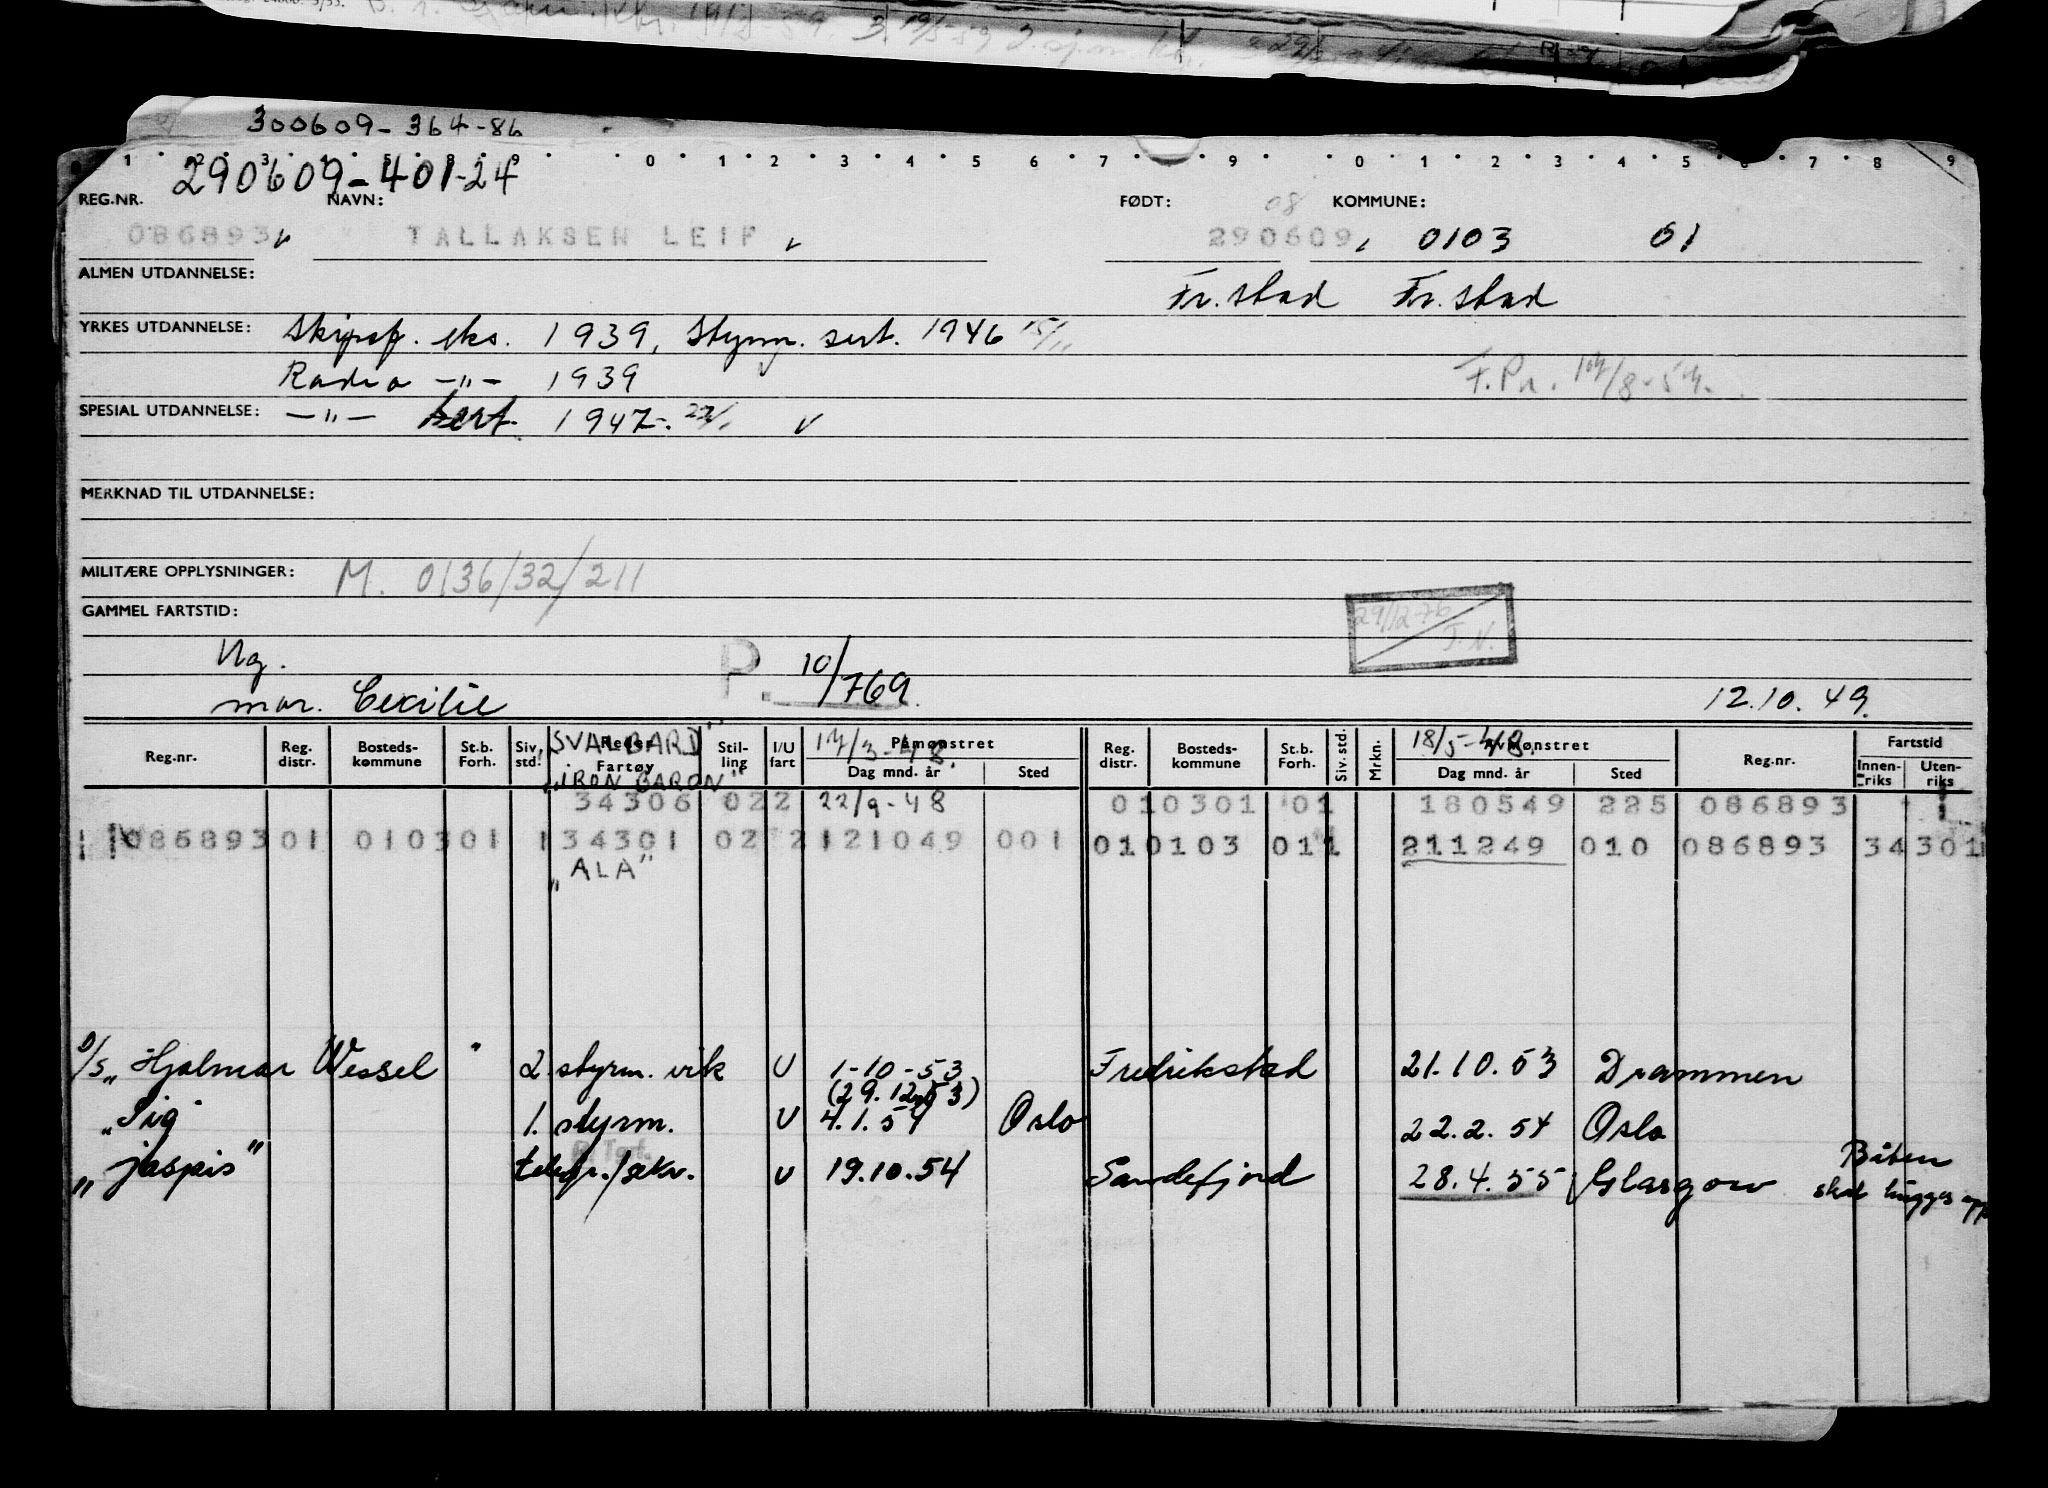 300609-364-86
1 2 3 4 5 8 9 0 1 2 3 4 5 6 7 9 0 1 2 3 4 5 6 7 8 9
290609-401-24
REG.NR. NAVN: FØDT: 08 KOMMUNE:
086893 v TALLAKSEN LEIF v 290609, 0103 01
ALMEN UTDANNELSE: Fr.stad Fr.stad
YRKES UTDANNELSE: Skipsf. eks. 1939, Styrm. sert. 1946 15/11
Radio -"- 1939 F.Pr. 17/8-57.
SPESIAL UTDANNELSE: -"- sert. 1947-. v
MERKNAD TIL UTDANNELSE:
MILITÆRE OPPLYSNINGER: M. 0136/32/211
GAMMEL FARTSTID: 29/12-76
F.N.
Ng. P. 10/769
mor. Cecilie 12.10.49.
Reg.nr. Reg. distr. Bosteds-kommune St.b. Forh. Siv. std. Reder Fartøy Stil-ling I/U fart Påmønstret Dag mnd. år Sted Reg. distr. Bosteds-kommune St.b. Forh. Siv. std. Mrkn. Avmønstret Dag mnd. år Sted Reg.nr. Fartstid Innen-riks Uten-riks
"SVALBARD" 17/3-48. 18/5-48.
"IRON BARON"
34306 022 22/9-48 010301 01 180549 225 086893 1
11 086893 01 010301 1 34301 02 2 2 121049 001 010103 011 211249 010 086893 34301
"ALA"
D/S "Hjalmar Wessel" 2. styrm. vik U 1-10-53 Fredrikstad 21.10.53 Drammen
(29.12.53)
"Sig" 1. styrm. U 4.1.54 Oslo 22.2.54 Oslo
R.Tgt.
"jaspis" telegr./sekr. U 19.10.54 Sandefjord 28.4.55 Glasgow Båten
skal hugges opp